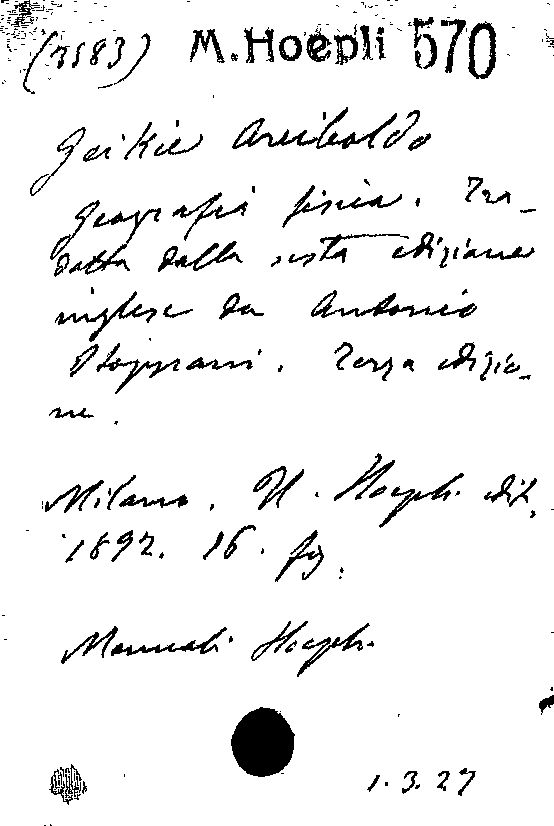 (7583) M. Hoepli 570
Geikie Arcibaldo
Geografia fisica. Tra-
datta dalla sesta edizione
inglese da Antonio
Stoppani. Terza edizio-
ne.
Milano. U. Hoepli edit.
1892. 16. fig.
Manuali Hoepli.
1.3.27